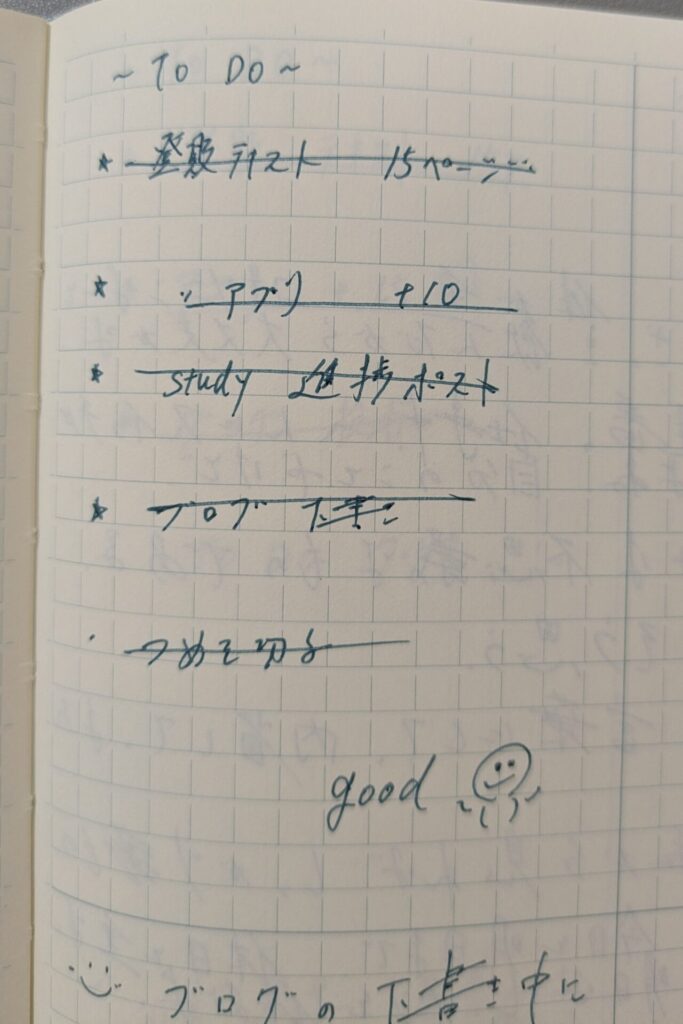 ~ TO DO ~
★ 登販テキスト 15ページ
★ 〃 アプリ +10
★ study 進捗ポスト
★ ブログ 下書き
・ つめを切る
good
ブログの下書き中に